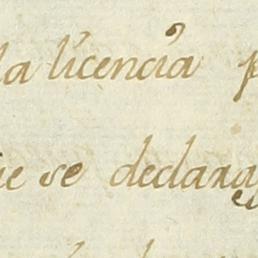 la licencia
se declara